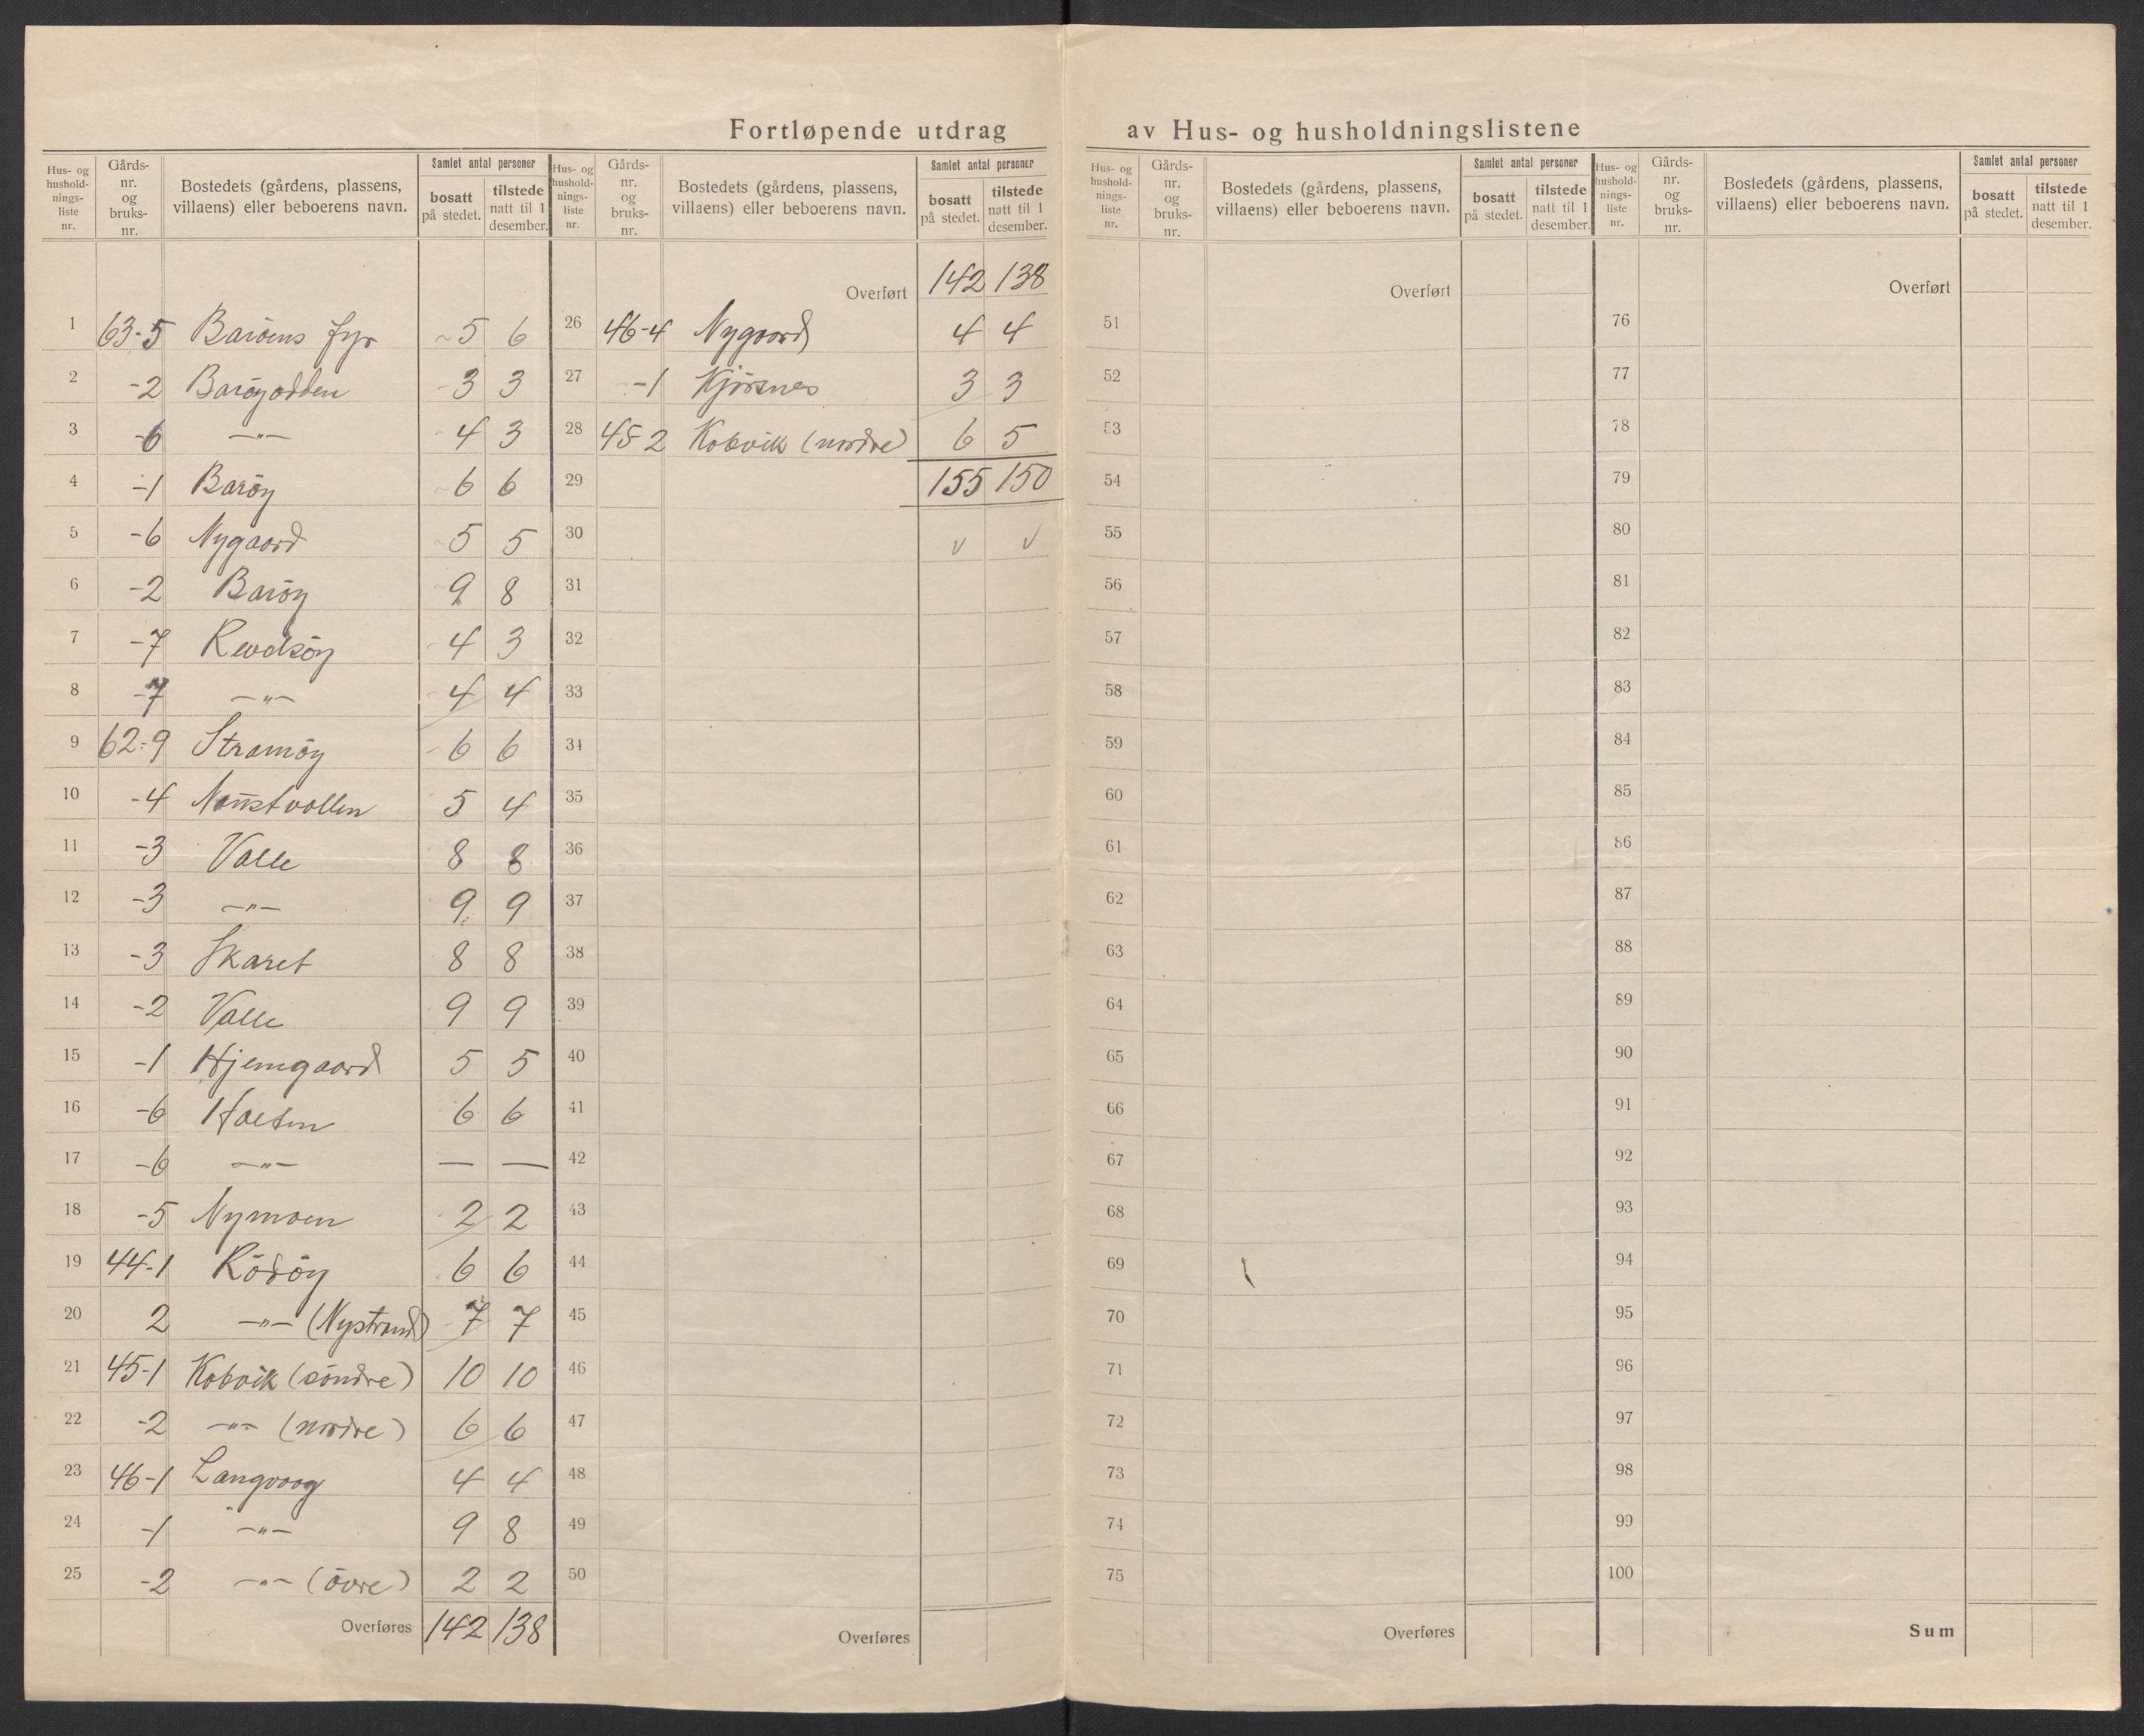 Fortløpende utdrag av Hus- og husholdningslistene
Hus- og hushold-nings-liste nr. Gårds-nr. og bruks-nr. Bostedets (gårdens, plassens, villaens) eller beboerens navn. Samlet antal personer bosatt på stedet. tilstede natt til 1 desember.
1 63-5 Barøens fyr 5 6
2 -2 Barøyodden 3 3
3 -6 —"— 4 3
4 -1 Barøy 6 6
5 -6 Nygaard 5 5
6 -2 Barøy 9 8
7 -7 4 3
8 -7 —"— 4 4
9 62-9 Stramøy 6 6
10 -4 Naustvollen 5 4
11 -3 Valle 8 8
12 -3 —"— 9 9
13 -3 Skaret 8 8
14 -2 Valle 9 9
15 -1 Hjemgaard 5 5
16 -6 6 6
17 -6 —"— — —
18 -5 Nymoen 2 2
19 44-1 Rödöy 6 6
20 2 —"— (Nystrand) 7 7
21 45-1 Kobvik (söndre) 10 10
22 -2 —"— (nordre) 6 6
23 46-1 Langvaag 4 4
24 -1 —"— 9 8
25 -2 —"— (övre) 2 2
Overføres 142 138
Hus- og hushold-nings-liste nr. Gårds-nr. og bruks-nr. Bostedets (gårdens, plassens, villaens) eller beboerens navn. Samlet antal personer bosatt på stedet. tilstede natt til 1 desember.
Overført 142 138
26 46-4 Nygaard 4 4
27 -1 Kjørsnes 3 3
28 45-2 Kobvik (nordre) 6 5
29 155 150
30 v v
31
32
33
34
35
36
37
38
39
40
41
42
43
44
45
46
47
48
49
50
Overføres
Hus- og hushold-nings-liste nr. Gårds-nr. og bruks-nr. Bostedets (gårdens, plassens, villaens) eller beboerens navn. Samlet antal personer bosatt på stedet. tilstede natt til 1 desember.
Overført
51
52
53
54
55
56
57
58
59
60
61
62
63
64
65
66
67
68
69
70
71
72
73
74
75
Overføres
Hus- og hushold-nings-liste nr. Gårds-nr. og bruks-nr. Bostedets (gårdens, plassens, villaens) eller beboerens navn. Samlet antal personer bosatt på stedet. tilstede natt til 1 desember.
Overført
76
77
78
79
80
81
82
83
84
85
86
87
88
89
90
91
92
93
94
95
96
97
98
99
100
Sum